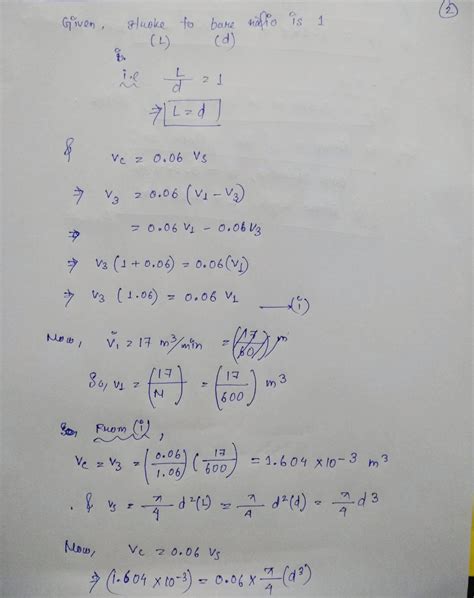 (2)
Given, stroke to bore ratio is 1
(L) (d)
i.e L/d = 1
⇒ L = d
& Vc = 0.06 Vs
⇒ V3 = 0.06 (V1 - V3)
⇒ = 0.06 V1 - 0.06 V3
⇒ V3 (1 + 0.06) = 0.06 (V1)
⇒ V3 (1.06) = 0.06 V1 → (i)
Now, V̊1 = 17 m³/min = (17/60) m
So, V1 = (17/N) = (17/600) m³
So, From (i),
Vc = V3 = (0.06/1.06) (17/600) = 1.604 × 10-3 m³
& Vs = π/4 d²(L) = π/4 d²(d) = π/4 d3
Now, Vc = 0.06 Vs
⇒ (1.604 × 10-3) = 0.06 × π/4 (d3)